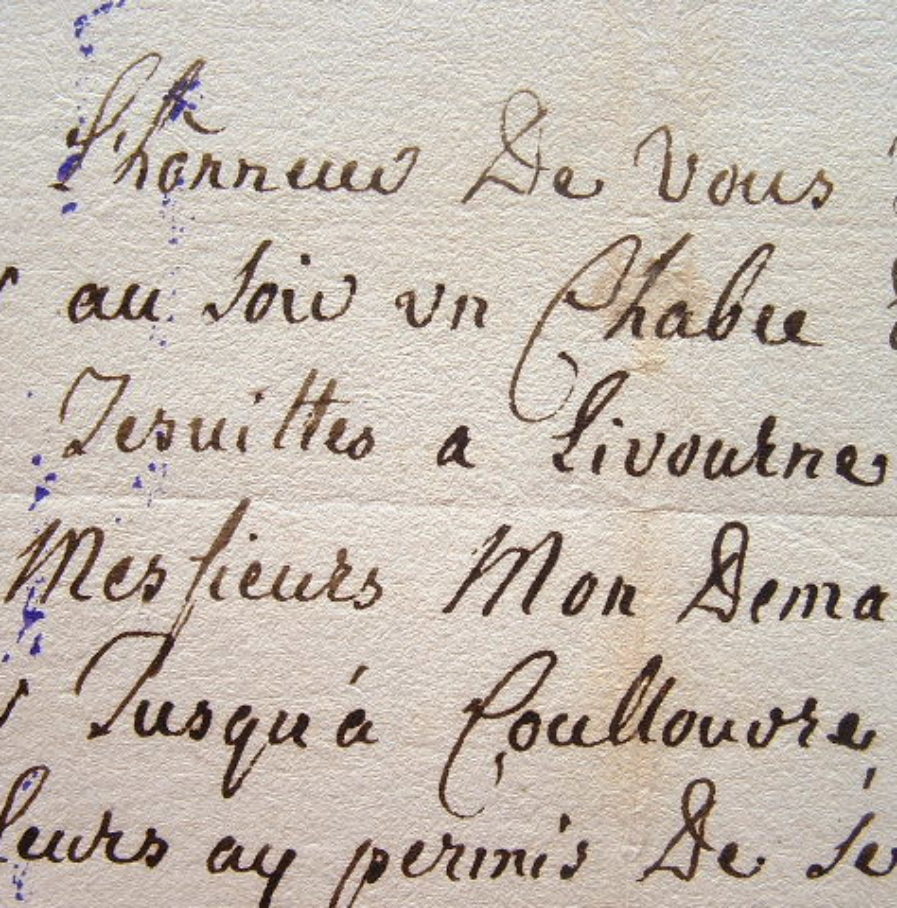 L'honneur De Vous
au Soir vn Chabre
Jesuittes a Livourne
Messieurs Mon Dema
Jusqu'á Coullouvre,
leurs ay permis De se